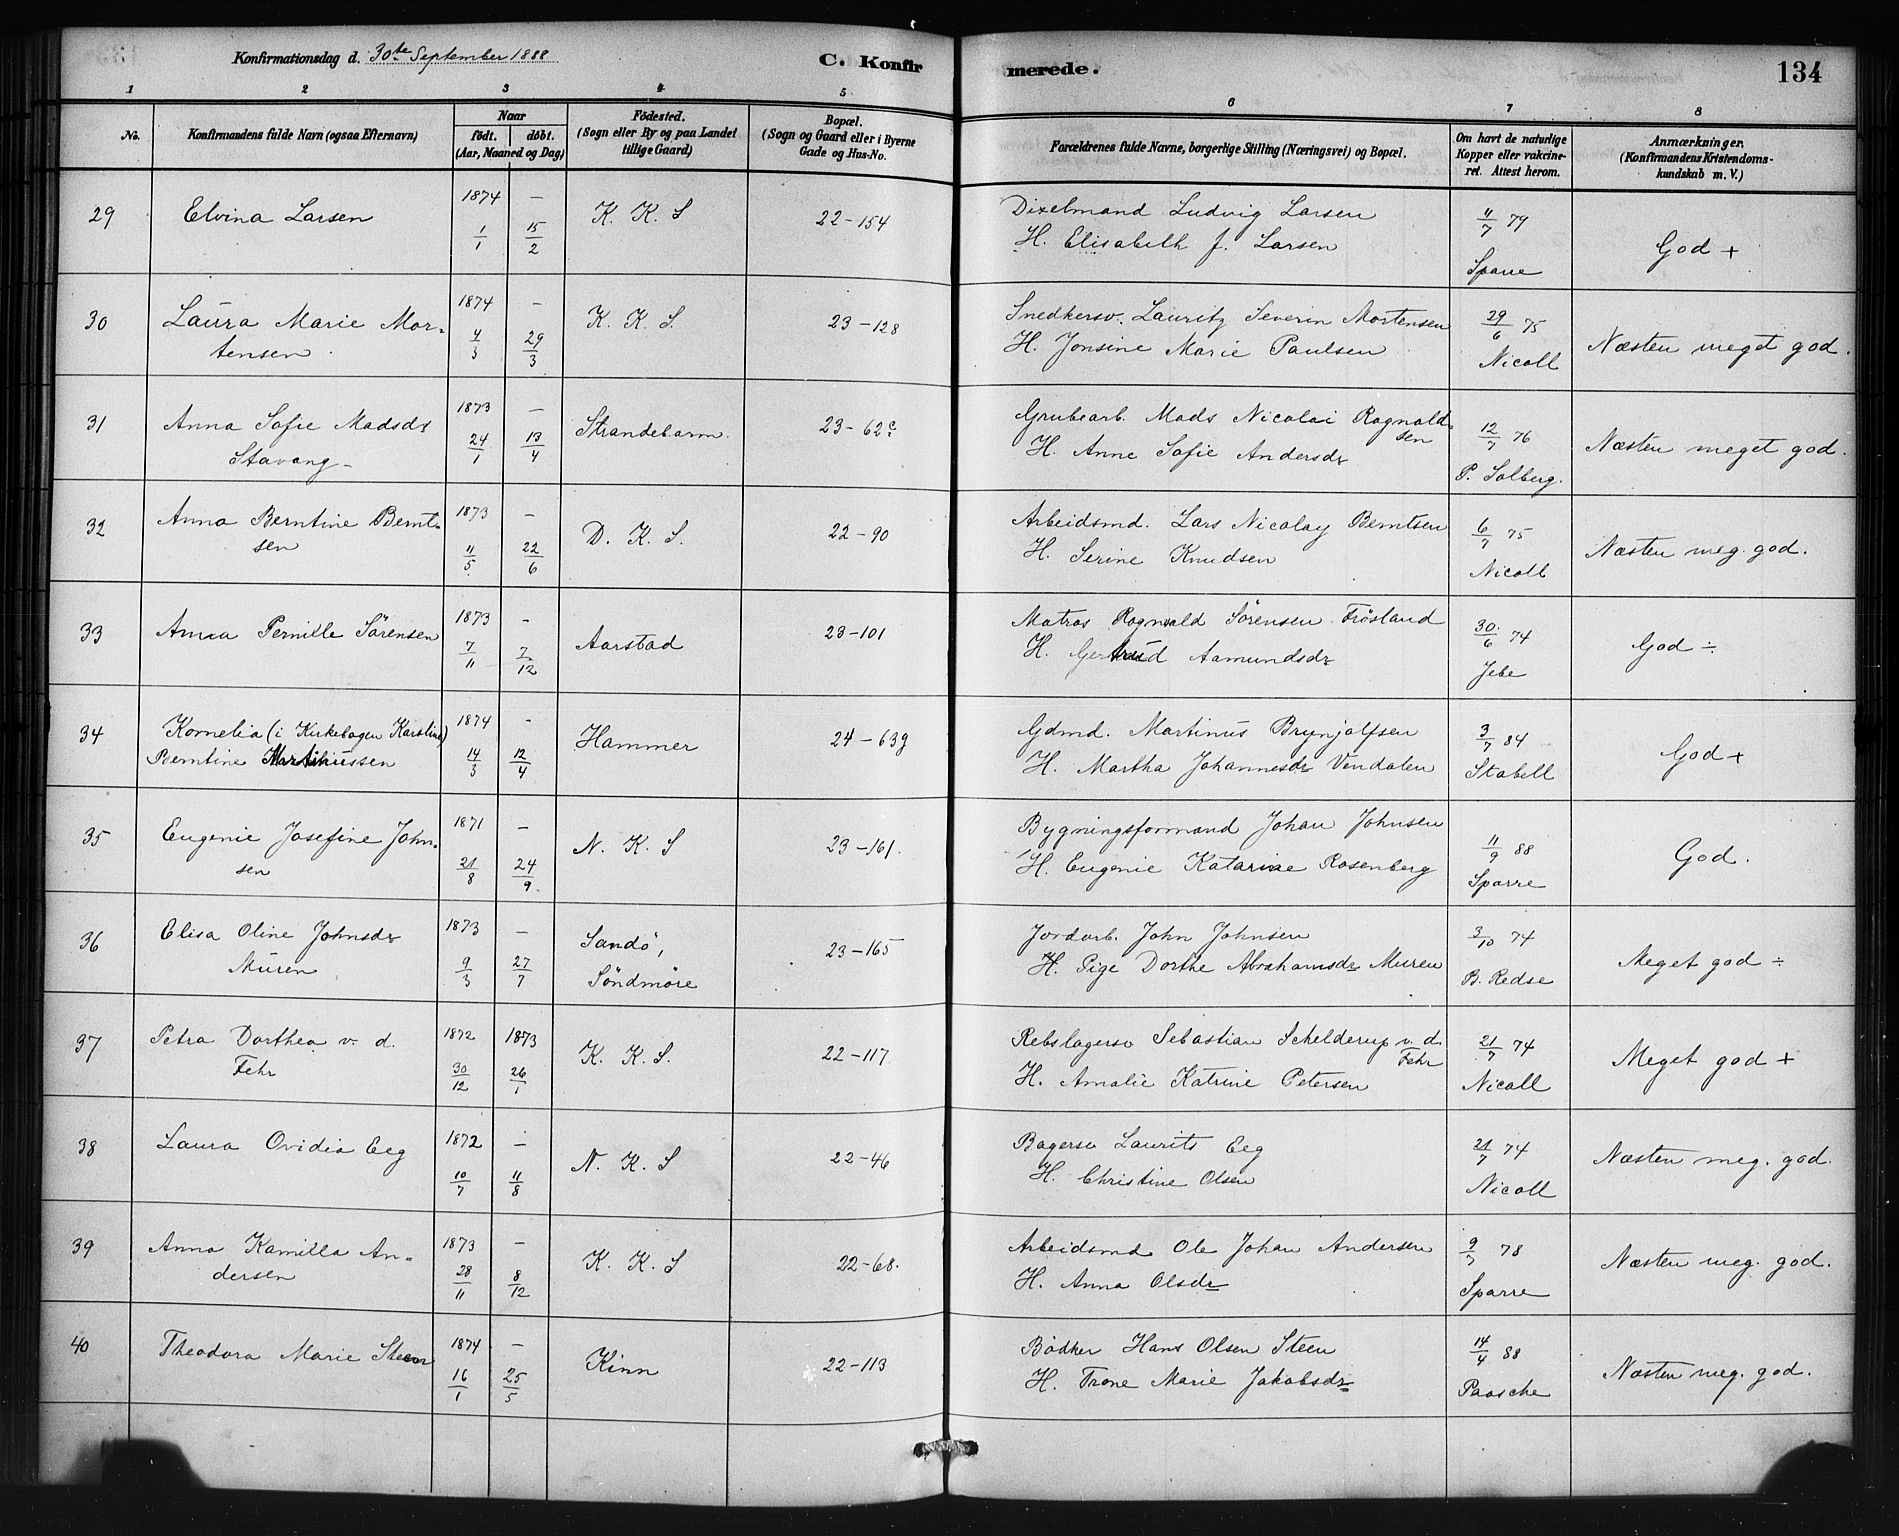 Konfirmationsdag d. 30te September 1888
C. Konfirmerede.
134
1 2 3 4 5 6 7 8
No.
Konfirmandens fulde Navn (ogsaa Efternavn)
Naar
födt. döbt.
(Aar, Maaned og Dag)
Födested.
(Sogn eller By og paa Landet
tillige Gaard)
Bopæl.
(Sogn og Gaard eller i Byerne
Gade og Hus-No.
Forældrenes fulde Navne, borgerlige Stilling (Næringsvei) og Bopæl.
Om havt de naturlige
Kopper eller vakcine-
ret. Attest herom.
Anmærkninger.
(Konfirmandens Kristendoms-
kundskab m. V.)
29 Elvina Larsen 1874 1/1 — 15/2 K. K. S 22-154
Dixelmand Ludvig Larsen
H. Elisabeth J. Larsen
11/7 79
God +
30 Laura Marie Mor-
tensen 1874 4/3 — 29/3 K. K. S. 23-128
Snedkersv. Lauritz Severin Mortensen
H. Jonsine Marie Paulsen
29/6 75
Nicoll
Næsten meget god.
31 Anna Sofie Madsdr
Stavang 1873 24/1 — 13/4 Strandebarm 23-62c
Grubearb. Mads Nicolai Ragnald-
sen
H. Anne Sofie Andersdr
12/7 76
P. Solberg.
Næsten meget god.
32 Anna Berntine Bernt-
sen 1873 11/5 — 22/6 D. K. S. 22-90
Arbeidsmd. Lars Nicolay Berntsen
H. Serine Knudsen
6/7 75
Nicoll
Næsten meg. god.
33 Anna Pernille Sörensen 1873 7/11 - 7/12 Aarstad 23-101
Matros Ragnvald Sörensen Frösland
H. Gertrud Aamundsdr
30/6 74
Jebe
God ÷
34 Kornelia (i Kirkebogen Karoline)
Berntine Martinussen 1874 14/3 - 12/4 Hammer 24-63g
Gdmd. Martinus Brynjolfsen
H. Martha Johannesdr Vendalen
3/7 84
Stabell
God +
35 Eugenie Josefine John-
sen 1871 21/8 — 24/9 N. K. S 23-161.
Bygningsformand Johan Johnsen
H. Eugenie Katarine Rosenberg
11/9 88
Sparre
God.
36 Elisa Oline Johnsdr
Muren 1873 9/3 — 27/7 Sandö,
Söndmöre 23-165
Jordarb. John Johnsen
H. Pige Dorthe Abrahamsdr Muren
3/10 74
B. Redse
Meget god ÷
37 Petra Dorthea v. d.
Fehr 1872 30/12 1873 26/1 K. K. S. 22-117
Rebslagersv Sebastian Schelderup v. d.
Fehr
H. Amalie Katrine Petersen
21/7 74
Nicoll
Meget god +
38 Laura Ovidia Eeg 1872 10/7 — 11/8 N. K. S 22-46
Bagersv Laurits Eeg
H. Christine Olsen
21/7 74
Nicoll
Næsten meg. god.
39 Anna Kamilla An-
dersen 1873 28/11 — 8/12 K. K. S 22-68.
Arbeidsmd Ole Johan Andersen
H. Anna Olsdr
9/7 78
Sparre
Næsten meg. god.
40 Theodora Marie Steen 1874 16/1 — 25/5 Kinn 22-113
Bödker Hans Olsen Steen
H. Trone Marie Jakobsdr
14/4 88
Paasche
Næsten meg. god.